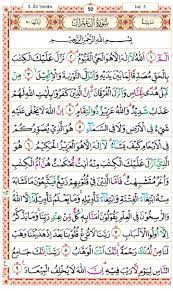 3. Āli 'Imrān 50 Juz 3
سُورَةُ آلِ عِمْرَانَ
بِسْمِ اللَّهِ الرَّحْمَٰنِ الرَّحِيمِ
الٓمٓ ١ اللَّهُ لَا إِلَٰهَ إِلَّا هُوَ الْحَيُّ الْقَيُّومُ ٢ نَزَّلَ عَلَيْكَ الْكِتَٰبَ
بِالْحَقِّ مُصَدِّقًا لِّمَا بَيْنَ يَدَيْهِ وَأَنزَلَ التَّوْرَىٰةَ وَالْإِنجِيلَ ٣
مِن قَبْلُ هُدًى لِّلنَّاسِ وَأَنزَلَ الْفُرْقَانَ إِنَّ الَّذِينَ كَفَرُوا بِـَٔايَٰتِ اللَّهِ لَهُمْ
عَذَابٌ شَدِيدٌ وَاللَّهُ عَزِيزٌ ذُو انتِقَامٍ ٤ إِنَّ اللَّهَ لَا يَخْفَىٰ عَلَيْهِ شَيْءٌ
فِي الْأَرْضِ وَلَا فِي السَّمَآءِ ٥ هُوَ الَّذِي يُصَوِّرُكُمْ فِي الْأَرْحَامِ
كَيْفَ يَشَآءُ لَآ إِلَٰهَ إِلَّا هُوَ الْعَزِيزُ الْحَكِيمُ ٦ هُوَ الَّذِيٓ أَنزَلَ عَلَيْكَ الْكِتَٰبَ
مِنْهُ ءَايَٰتٌ مُّحْكَمَٰتٌ هُنَّ أُمُّ الْكِتَٰبِ وَأُخَرُ مُتَشَٰبِهَٰتٌ فَأَمَّا الَّذِينَ
فِي قُلُوبِهِمْ زَيْغٌ فَيَتَّبِعُونَ مَا تَشَٰبَهَ مِنْهُ ابْتِغَآءَ الْفِتْنَةِ
وَابْتِغَآءَ تَأْوِيلِهِ وَمَا يَعْلَمُ تَأْوِيلَهُ إِلَّا اللَّهُ
وَالرَّٰسِخُونَ فِي الْعِلْمِ يَقُولُونَ ءَامَنَّا بِهِ كُلٌّ مِّنْ عِندِ رَبِّنَا وَمَا يَذَّكَّرُ
إِلَّآ أُولُوا الْأَلْبَٰبِ ٧ رَبَّنَا لَا تُزِغْ قُلُوبَنَا بَعْدَ إِذْ هَدَيْتَنَا وَهَبْ
لَنَا مِن لَّدُنكَ رَحْمَةً إِنَّكَ أَنتَ الْوَهَّابُ ٨ رَبَّنَآ إِنَّكَ جَامِعُ
النَّاسِ لِيَوْمٍ لَّا رَيْبَ فِيهِ إِنَّ اللَّهَ لَا يُخْلِفُ الْمِيعَادَ ٩